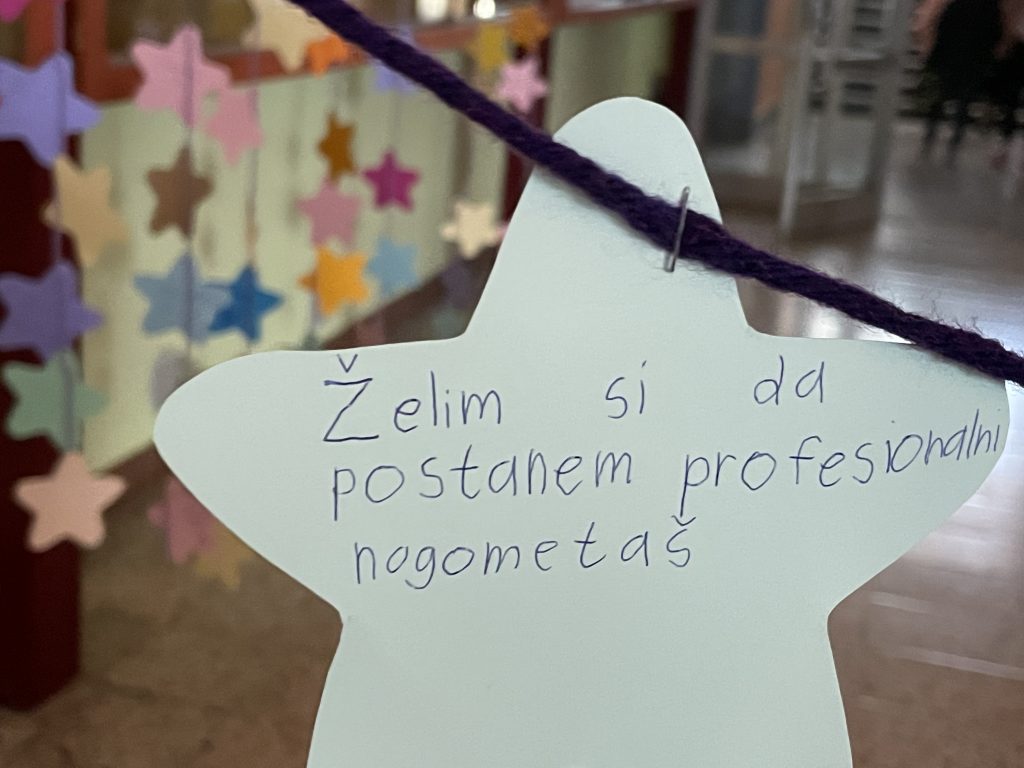 Želim si da
postanem profesionalni
nogometaš